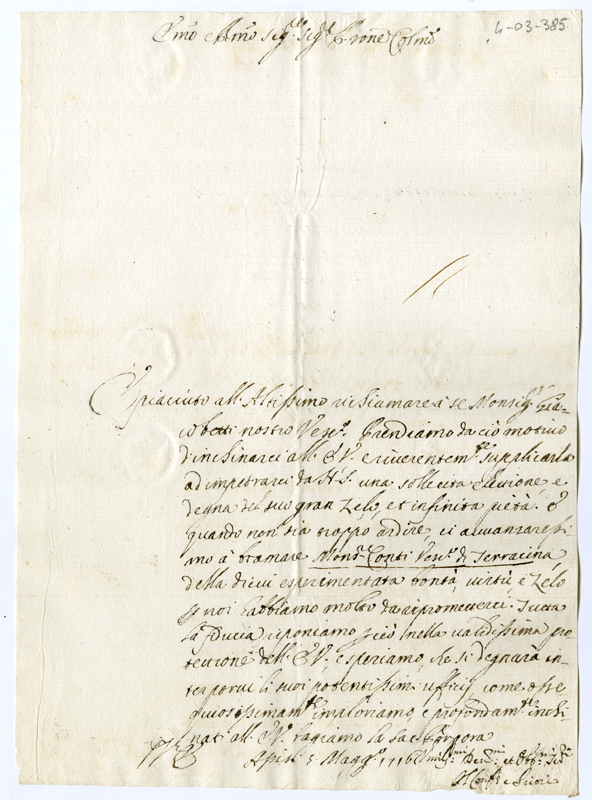 4-03-385
Emo e Rmo Sig.re Sig.r e Prone Colmo
È piaciuto all'Altissimo richiamare à se Monsig.r Gia-
cobetti nostro Vesc.o. Prendiamo da ciò motivo
d'inchinarci all'E.V. e riverentem.te supplicarla
ad impetrarci da N.S. una sollecita elezione e
degna del suo gran Zelo, et infinita pietà. E
quando non sia troppo ordire ci avvanzaressi-
mo à bramare Mons.r Conti Vesc.o di Terracina
della di cui esperimentata bontà, virtù e Zelo
noi habbiamo molto da ripromettersi. Tutta
la fiducia riponiamo perciò nella validissima pro-
tettione dell'E.V. e speriamo, che si degnarà in-
terporvi li suoi potentissimi ufficij, come osse-
quiosissimam.te imploriamo, e profondam.te inchi-
nati all'E.V. baciamo la Sac. Porpora
5 Magg.o